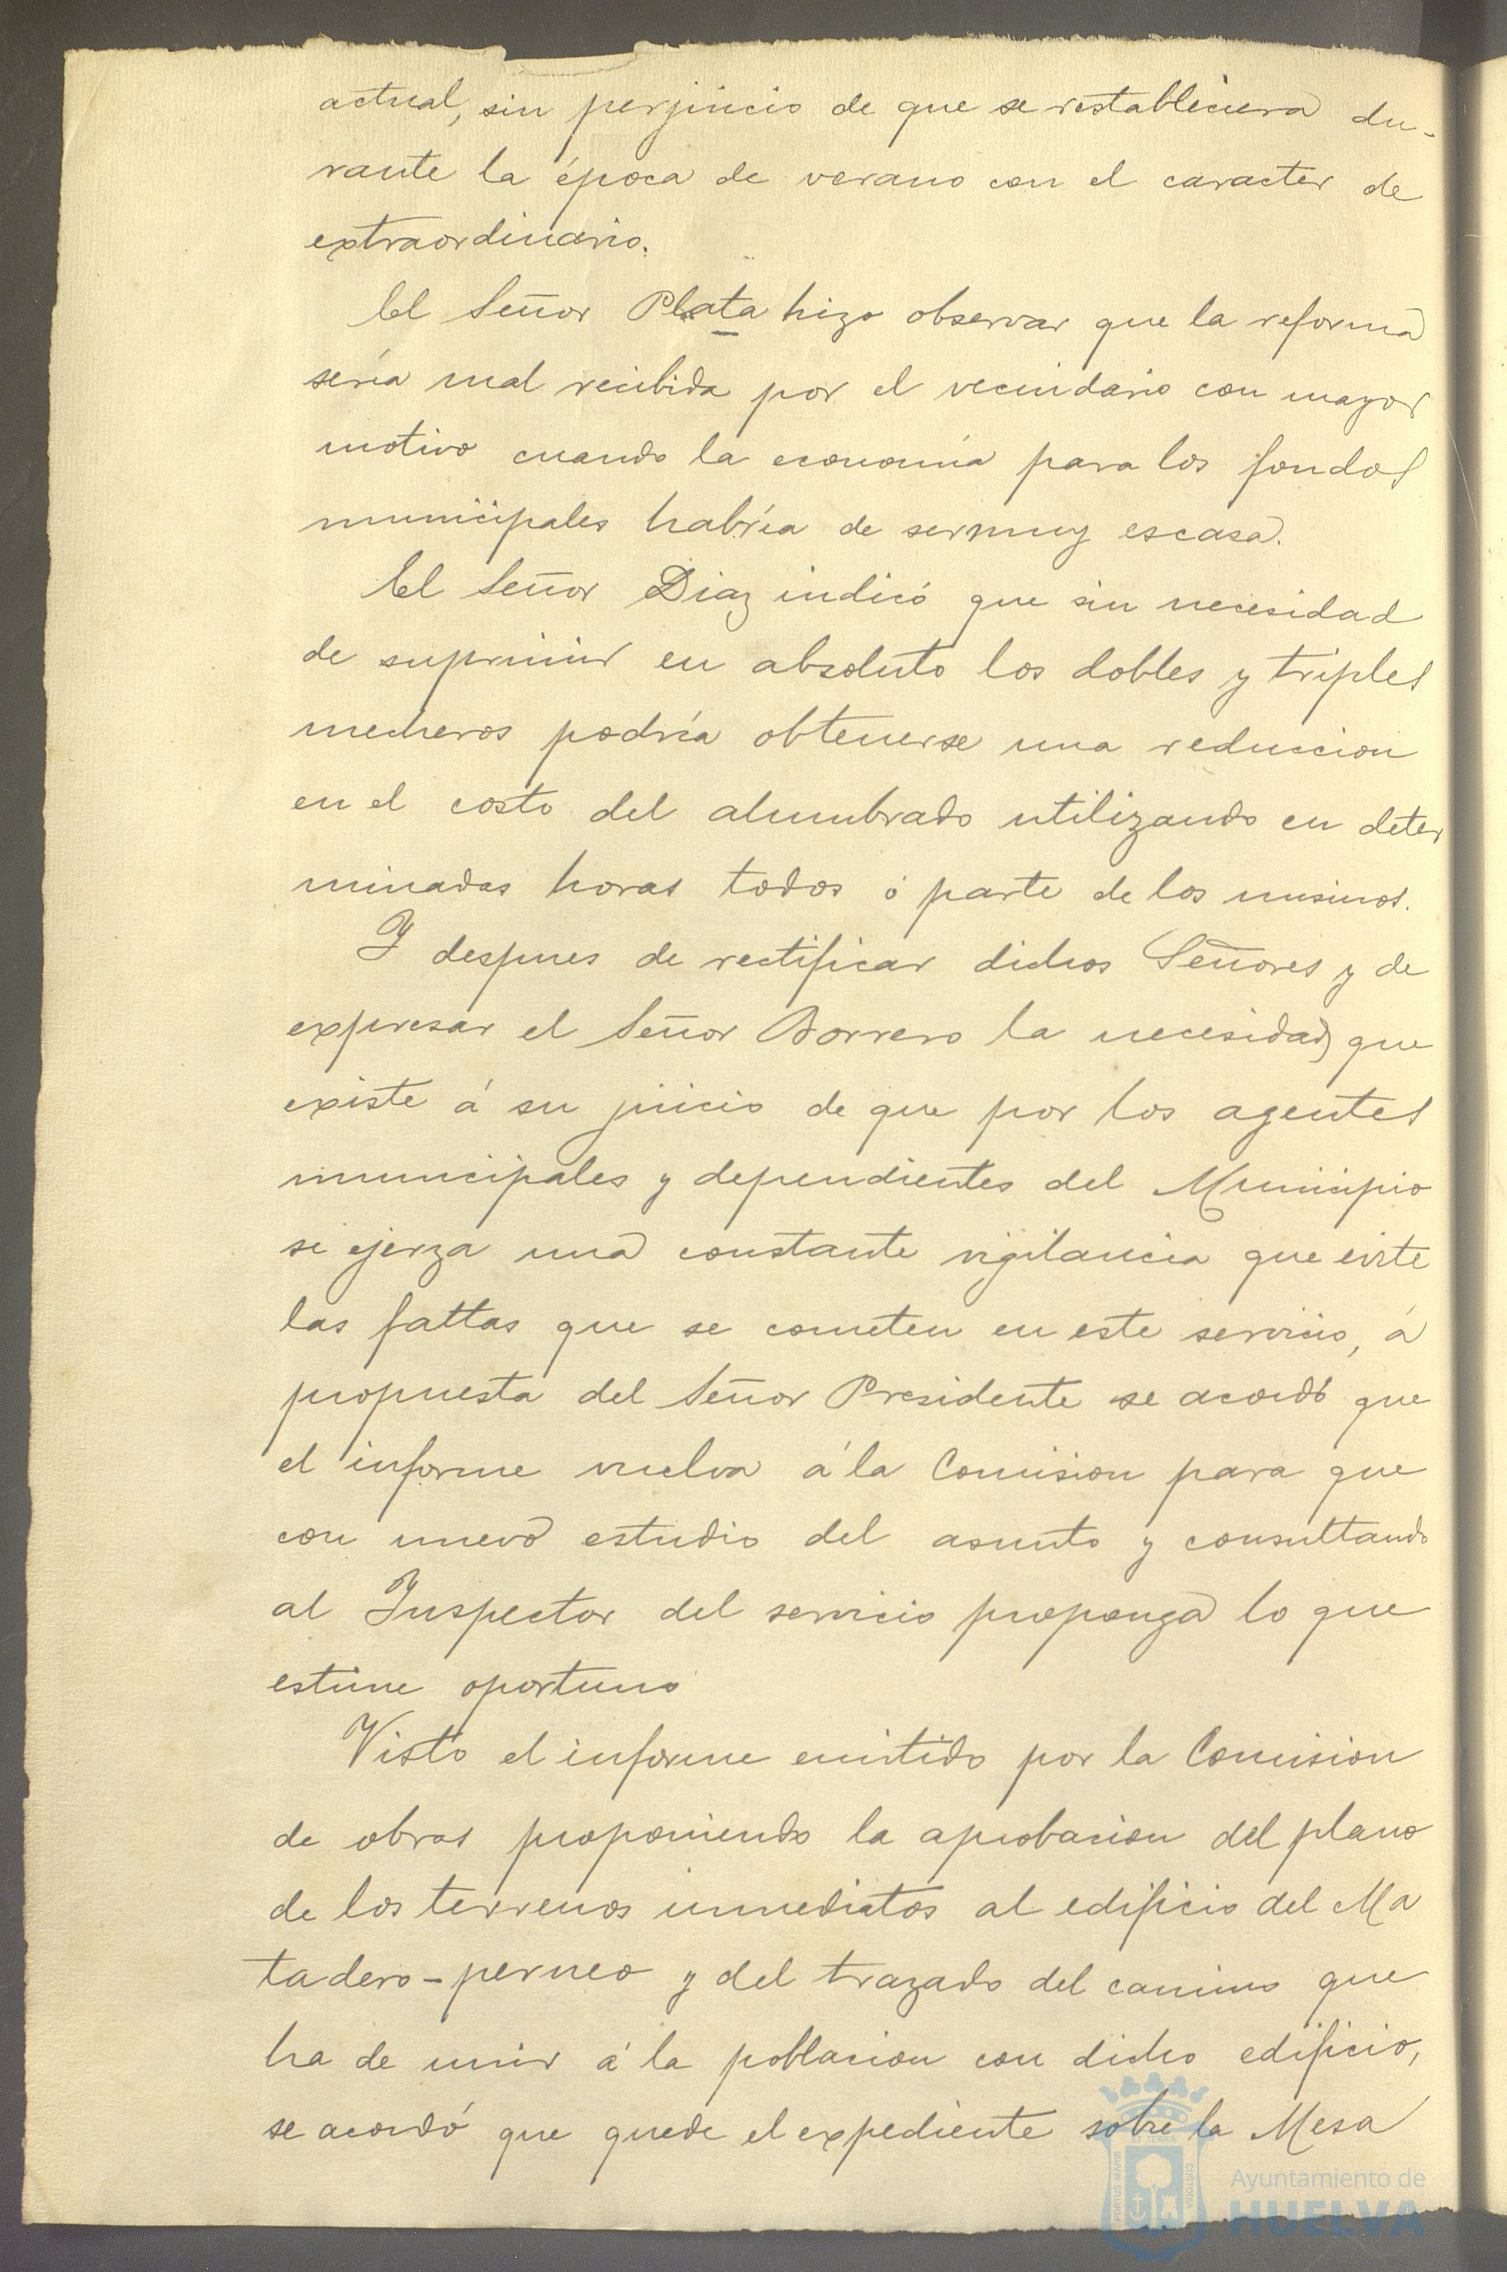 actual, sin perjuicio de que se restableciera du-
rante la época de verano con el caracter de
extraordinario.
El Señor Plata hizo observar que la reforma
sería mal recibida por el vecindario con mayor
motivo cuando la economía para los fondos
municipales habría de ser muy escasa.
El Señor Diaz indicó que sin necesidad
de suprimir en absoluto los dobles y triples
mecheros podría obtenerse una reduccion
en el costo del alumbrado utilizando en deter
minadas horas todos ó parte de los mismos.
Y despues de rectificar dichos Señores y de
expresar el Señor Borrero la necesidad que
existe á su juicio de que por los agentes
municipales y dependientes del Municipio
se ejerza una constante vigilancia que evite
las faltas que se cometen en este servicio, á
propuesta del Señor Presidente se acordó que
el informe vuelva á la Comision para que
con nuevo estudio del asunto y consultando
al Inspector del servicio proponga lo que
estime oportuno
Visto el informe emitido por la Comision
de obras proponiendo la aprobacion del plano
de los terrenos inmediatos al edificio del Ma
tadero-perneo y del trazado del camino que
ha de unir á la poblacion con dicho edificio,
se acordó que quede el expediente sobre la Mesa
Ayuntamiento de
HUELVA
PORTUS MARIS
ET TERRAE
CUSTODIA